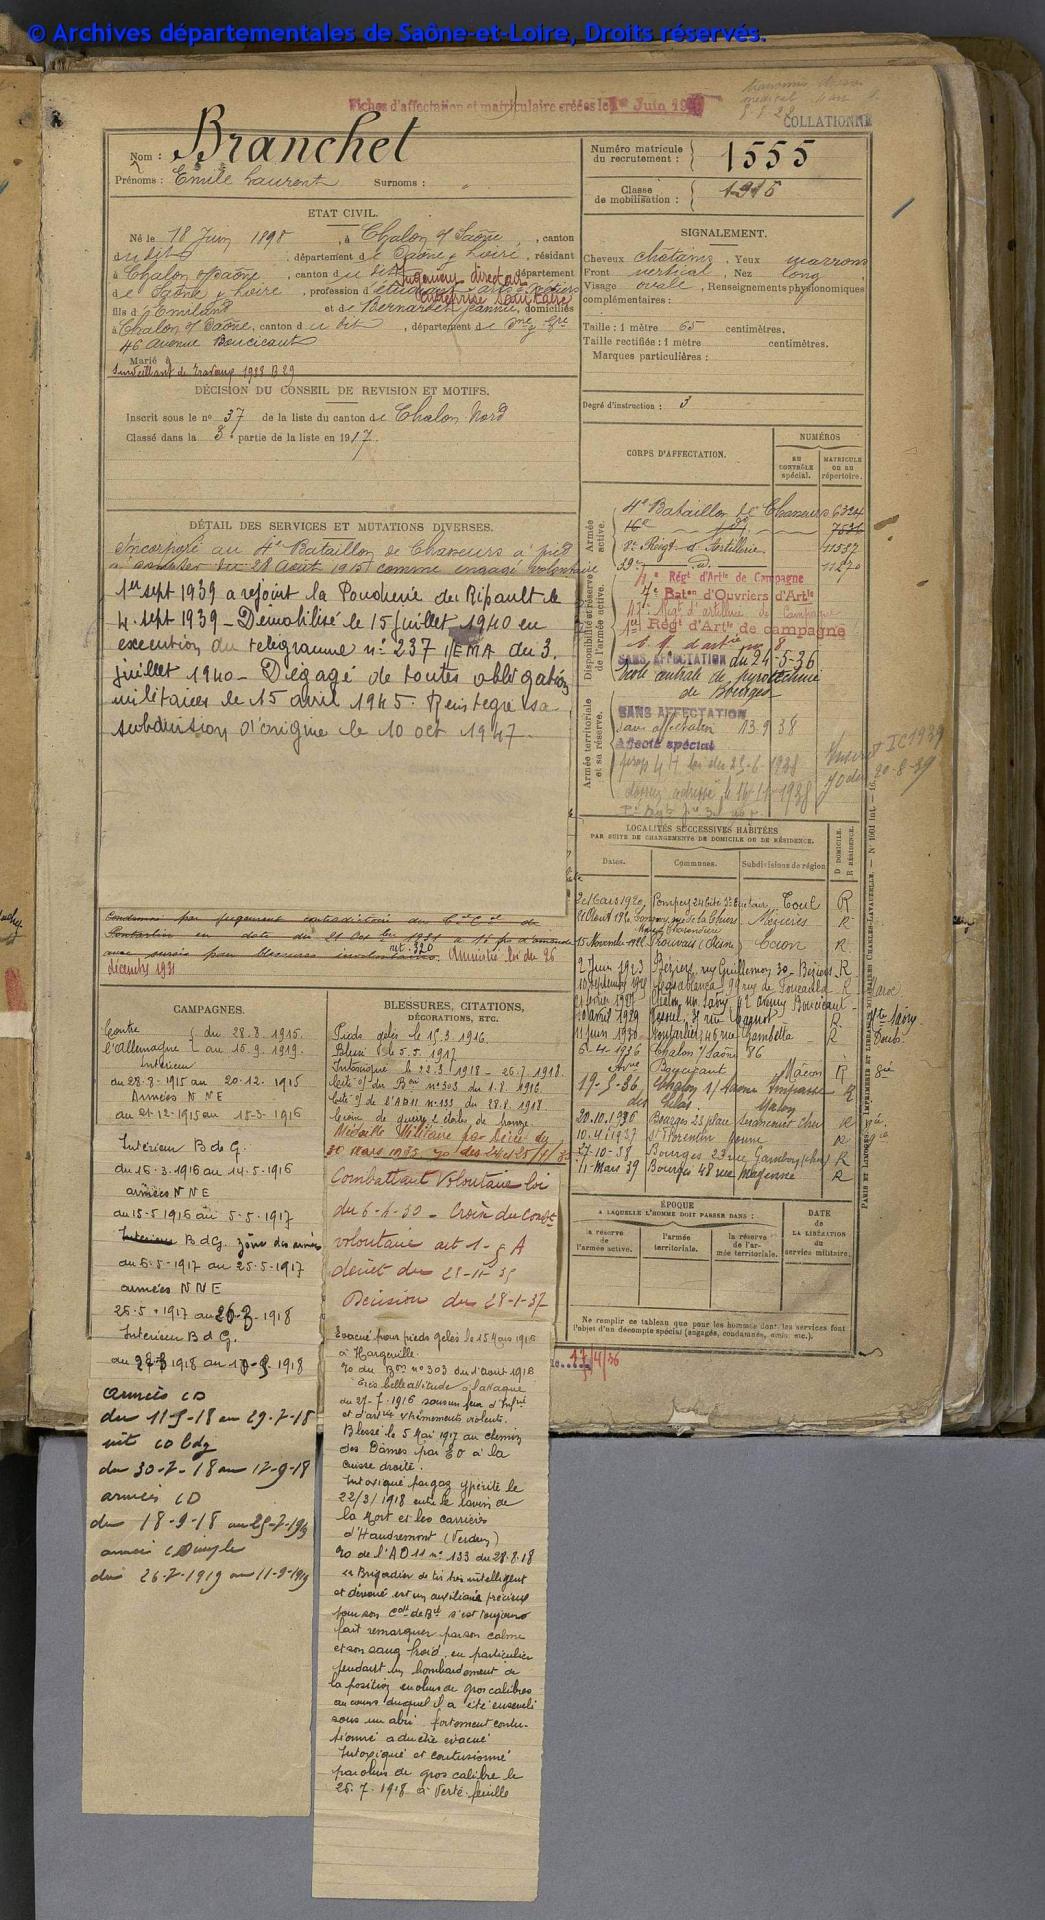 © Archives départementales de Saône-et-Loire, Droits réservés.
Fiches d'affectation et matriculaire créées le 1er Juin
COLLATIONNÉ
Nom : Branchet
Prénoms : Emile Laurent Surnoms : "
Numéro matricule du recrutement : 1555
Classe de mobilisation : 1915
ETAT CIVIL.
Né le 18 Juin 1898, à Chalon s/ Saône, canton
du dit, département de Saône & Loire, résidant
à Chalon s/Saône, canton du dit département
Ingénieur directeur
de Saône & Loire, profession d'étudiant arts & métiers
entreprise sanitaire
fils d'Emiland et de Bernardin Jeanne, domiciliés
à Chalon s/ Saône, canton du dit, département de Sne & Lre
46 avenue Boucicaut
Marié à
Surveillant de travaux 1933 B 29
SIGNALEMENT.
Cheveux chatains, Yeux marrons
Front vertical, Nez long
Visage ovale, Renseignements physionomiques
complémentaires :
Taille : 1 mètre 65 centimètres.
Taille rectifiée : 1 mètre centimètres.
Marques particulières :
Degré d'instruction : 3
DÉCISION DU CONSEIL DE REVISION ET MOTIFS.
Inscrit sous le n° 37 de la liste du canton de Chalon Nord
Classé dans la 3e partie de la liste en 1917.
CORPS D'AFFECTATION.
NUMÉROS
AU CONTRÔLE spécial.
MATRICULE OU AU répertoire.
Armée active.
4e Bataillon de Chasseurs 6324
16e do 7536
8e Régt d'Artillerie 11537
32e d. 11570
Disponibilité et réserve de l'armée active.
4e Régt d'Artie de Campagne
7e Baton d'Ouvriers d'Artie
47e Régt d'artillerie de Campagne
1er Régt d'Artie de campagne
SANS AFFECTATION du 24-5-36
Ecole centrale de pyrotechnie
de Bourges
Armée territoriale et sa réserve.
SANS AFFECTATION
sans affectation 13.9.38
Affecté spécial
loi du
DÉTAIL DES SERVICES ET MUTATIONS DIVERSES.
Incorporé au 4e Bataillon de Chasseurs à pied
à compter du 28 Août 1915 comme engagé volontaire
1er sept 1939 a rejoint la Poudrerie du Ripault le
4 sept 1939 - Démobilisé le 15 juillet 1940 en
execution du telegramme n° 237 1/EMA du 3
juillet 1940 - Dégagé de toutes obligations
militaires le 15 avril 1945. Reintegre sa
subdivision d'origine le 10 oct 1947
Condamné par jugement contradictoire du
Pontarlier en date du 21 1931 à 16 frs d'amende
art. 320
avec sursis pour blessures involontaires. Amnistié loi du 26
décembre 1931
LOCALITÉS SUCCESSIVES HABITÉES
PAR SUITE DE CHANGEMENTS DE DOMICILE OU DE RÉSIDENCE.
Dates. Communes. Subdivisions de région D DOMICILE. R RÉSIDENCE.
Pompey Toul R
Mézières R
15 Novembre 1922 Prouvais (Aisne) Laon R
2 Juin 1923 Béziers, rue Guillemon 30 - Béziers R
Casablanca, 99 rue de Foucauld - R Maroc
Chalon sur Saône 42 avenue Boucicaut - R
10 avril 1929 Vesoul, 31 rue Carnot R Hte Saône
11 juin 1930 Pontarlier, 46 rue Gambetta - R Doubs
5-4-1936 Chalon s/ Saône 86
Avue Boucicaut Mâcon R
19-5-36 Chalon s/ Saone Impasse R
des Lilas. Mâcon
20.10.1936 Bourges 23 place Séraucourt Cher R
10.4.1937 St Florentin Yonne R
27-10-38 Bourges 23 rue Gambon (cher) R
11-Mars 39 Bourges 48 rue Mayenne R
ÉPOQUE
A LAQUELLE L'HOMME DOIT PASSER DANS :
la réserve de l'armée active.
l'armée territoriale.
la réserve de l'armée territoriale.
DATE de LA LIBÉRATION du service militaire.
Ne remplir ce tableau que pour les hommes dont les services font
l'objet d'un décompte spécial (engagés, condamnés, omis, etc.).
17/4/36
CAMPAGNES.
Contre du 28.8.1915
l'Allemagne au 15.9.1919.
Intérieur
du 28-8-1915 au 20-12-1915
Armées N N E
au 21-12-1915 au 15-3-1916
Intérieur B d G.
du 16-3-1916 au 14-5-1916
armées N N E
du 15-5-1916 au 5-5-1917
Intérieur B d G. zône des armées
du 6-5-1917 au 25-5-1917
armées N N E
26-5-1917 au 1918
Intérieur B d G.
du 1918 au 1918
armées C D
du 11-5-18 au 29-7-18
int C D bdg
du 30-7-18 au 17-9-18
armées C D
du 18-9-18 au 25-7-1919
armées C simple
du 26-7-1919 au 11-9-1919
BLESSURES, CITATIONS,
DÉCORATIONS, ETC.
Pieds gelés le 15.3.1916.
Blessé le 5.5.1917
Intoxiqué le 22.3.1918 - 26.7.1918.
Cité o/ du Bon n° 303 du 1.8.1916.
Cité o/ de l'AD11 n° 133 du 28.8.1918.
Croix de guerre 2 étoiles de bronze.
Médaille Militaire par décret du
30 mars 1935
Combattant Volontaire loi
du
volontaire art 1 - § A
decret du 28-11-35
Décision du 28-1-37
Evacué pour pieds gelés le 15 Mars 1916
à Hargeville.
ro du Bon n° 303 du 1er août 1916
Très belle attitude à l'attaque
du 27-7-1916 sous un feu d'Infie
et d'artie vêhémements violents.
Blessé le 5 Mai 1917 au chemin
des Dames par EO à la
cuisse droite.
Intoxiqué par gaz ypérite le
22/3/1918 entre le ravin de
la Mort et les carrières
d'Haudremont (Verdun)
ro de l'AD 11 n° 133 du 28.8.18
"Brigadier de tir très intelligent
et dévoué est un auxiliaire précieux
pour son Cdt de Bie s'est toujours
fait remarquer par son calme
et son sang froid, en particulier
pendant un bombardement de
la position en obus de gros calibres
au cours duquel il a été enseveli
sous un abri fortement contu-
sionné a du être évacué
Intoxiqué et contusionné
par obus de gros calibre le
26.7.1918 à Verte-feuille
PARIS ET LIMOGES. — IMPRIMERIE ET LIBRAIRIE MILITAIRES CHARLES-LAVAUZELLE. — N° 1661